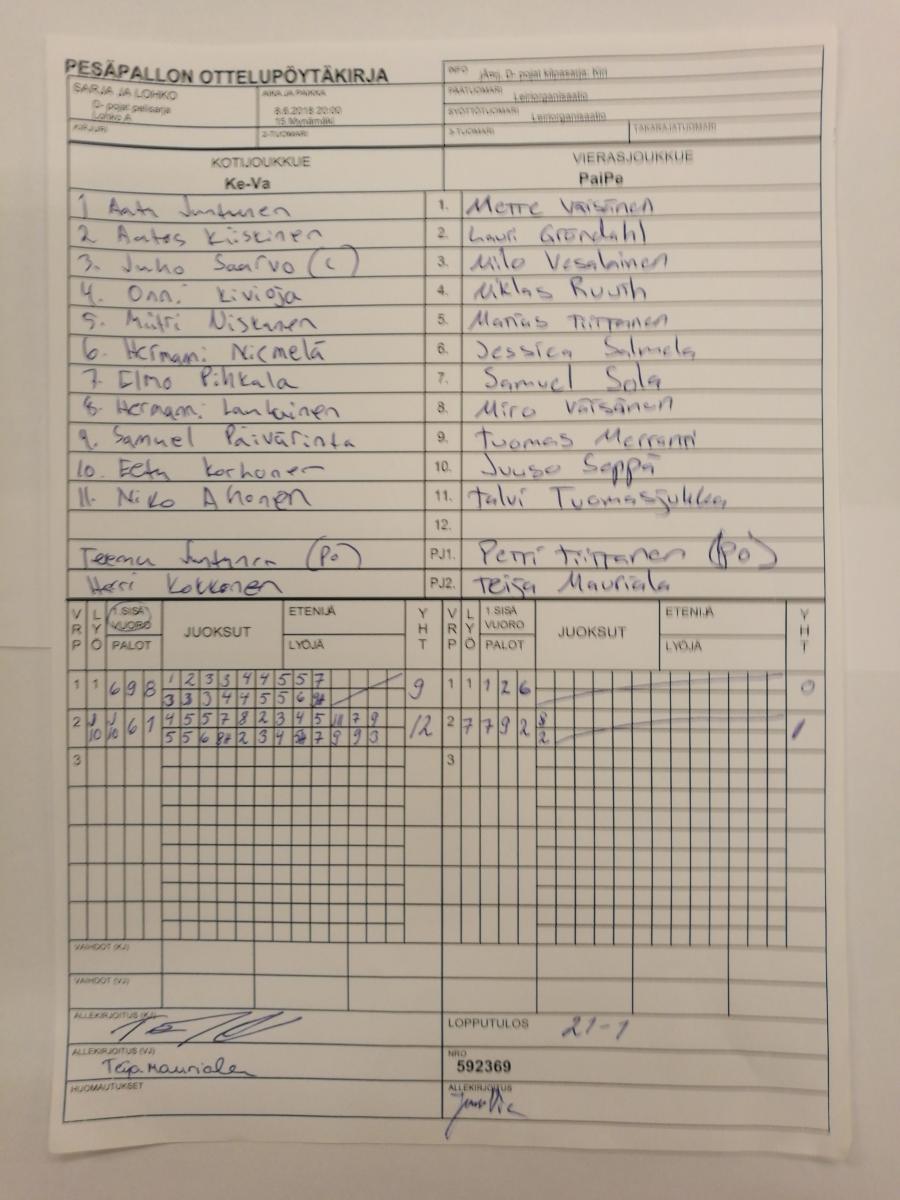 PESÄPALLON OTTELUPÖYTÄKIRJA
SARJA JA LOHKO
D- pojat pelisarja
Lohko A
AIKA JA PAIKKA
8.6.2018 20:00
15 Mynämäki
KIRJURI
2-TUOMARI
INFO
D- pojat kilpasarja:
PÄÄTUOMARI
Leiriorganisaatio
SYÖTTÖTUOMARI
Leiriorganisaatio
3-TUOMARI
TAKARAJATUOMARI
KOTIJOUKKUE
Ke-Va
VIERASJOUKKUE
PaiPa
1 Aatu Juntunen
1. Merre Väisänen
2 Aatos Kiiskinen
2. Lauri Gröndahl
3. Juho Saarvo (C)
3. Milo Vesalainen
4. Onni Kivioja
4. Niklas Ruuth
5. Miitri Niskanen
5. Matias Tiittanen
6. Hermanni Niemelä
6. Jessica Salmela
7. Elmo Pihkala
7. Samuel Sola
8. Hermanni Lankainen
8. Miro Väisänen
9. Samuel Päivärinta
9. Tuomas Merranti
10. Eetu Korhonen
10. Juuso Seppä
11. Niko Ahonen
11. Talvi Tuomasjukka
12.
Teemu Juntunen (PO)
PJ1. Petri Tiittanen (PO)
Harri Kokkonen
PJ2. Teija Mauriala
VRP LYÖ 1.SISÄ VUORO PALOT JUOKSUT ETENIJÄ LYÖJÄ YHT
VRP LYÖ 1.SISÄ VUORO PALOT JUOKSUT ETENIJÄ LYÖJÄ YHT
1 1 6 9 8 1 2 3 3 4 4 5 5 7 9
3 3 3 4 4 5 5 6
1 1 1 2 6 0
2 6 1 4 5 5 7 8 2 3 4 5 7 9 12
10 10 5 5 6 2 3 4 7 9 9 3
2 7 7 9 2 8 1
2
3
3
VAIHDOT (KJ)
VAIHDOT (VJ)
ALLEKIRJOITUS (KJ)
LOPPUTULOS 21-1
ALLEKIRJOITUS (VJ)
Teija Mauriala
NRO
592369
HUOMAUTUKSET
ALLEKIRJOITUS